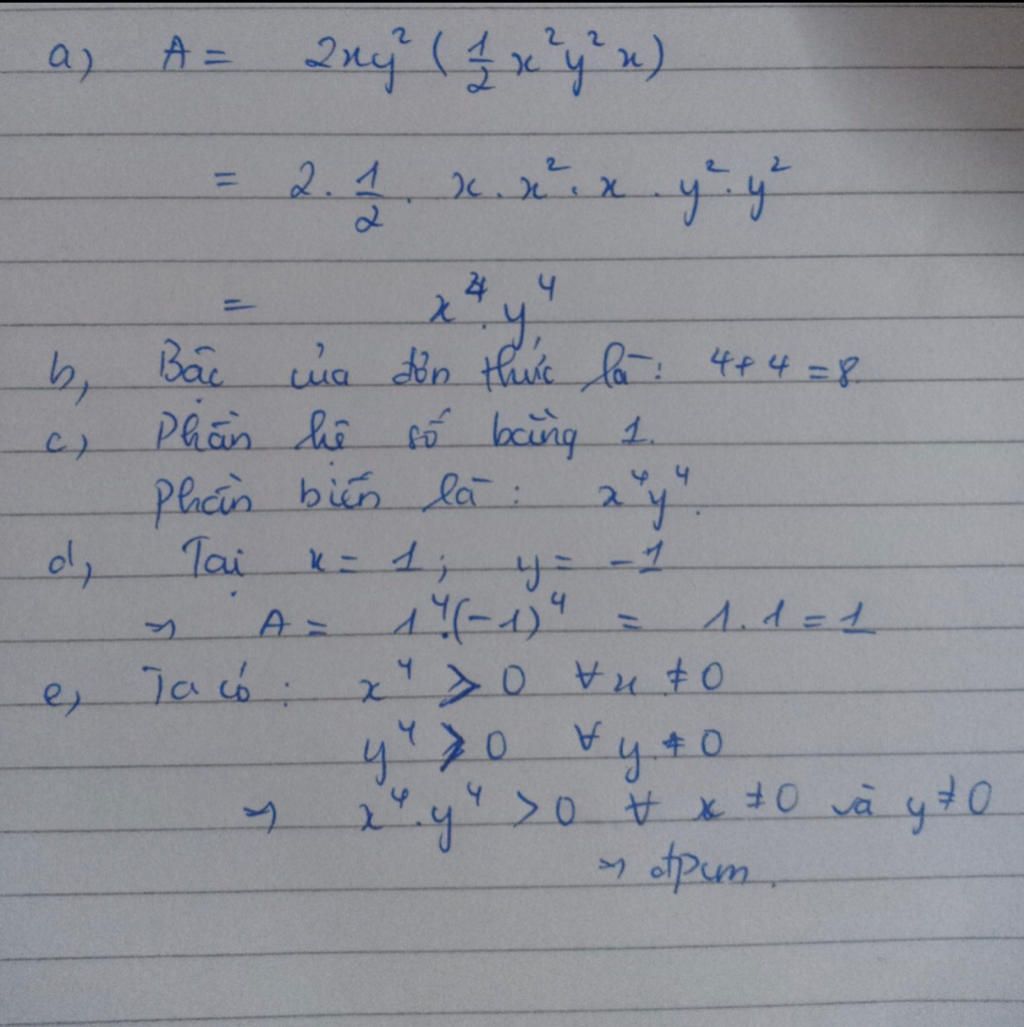 a) A = 2xy² ( 1/2 x²y²x)
= 2 . 1/2 . x . x² . x . y² . y²
= x⁴ . y⁴
b, Bậc của đơn thức là: 4+4=8
c) Phần hệ số bằng 1.
Phần biến là: x⁴y⁴.
d, Tại x = 1; y = -1
⇒ A = 1⁴.(-1)⁴ = 1.1=1
e, Ta có: x⁴ > 0 ∀x ≠ 0
y⁴ > 0 ∀y ≠ 0
⇒ x⁴.y⁴ > 0 ∀ x ≠ 0 và y ≠ 0
⇒ đpcm.